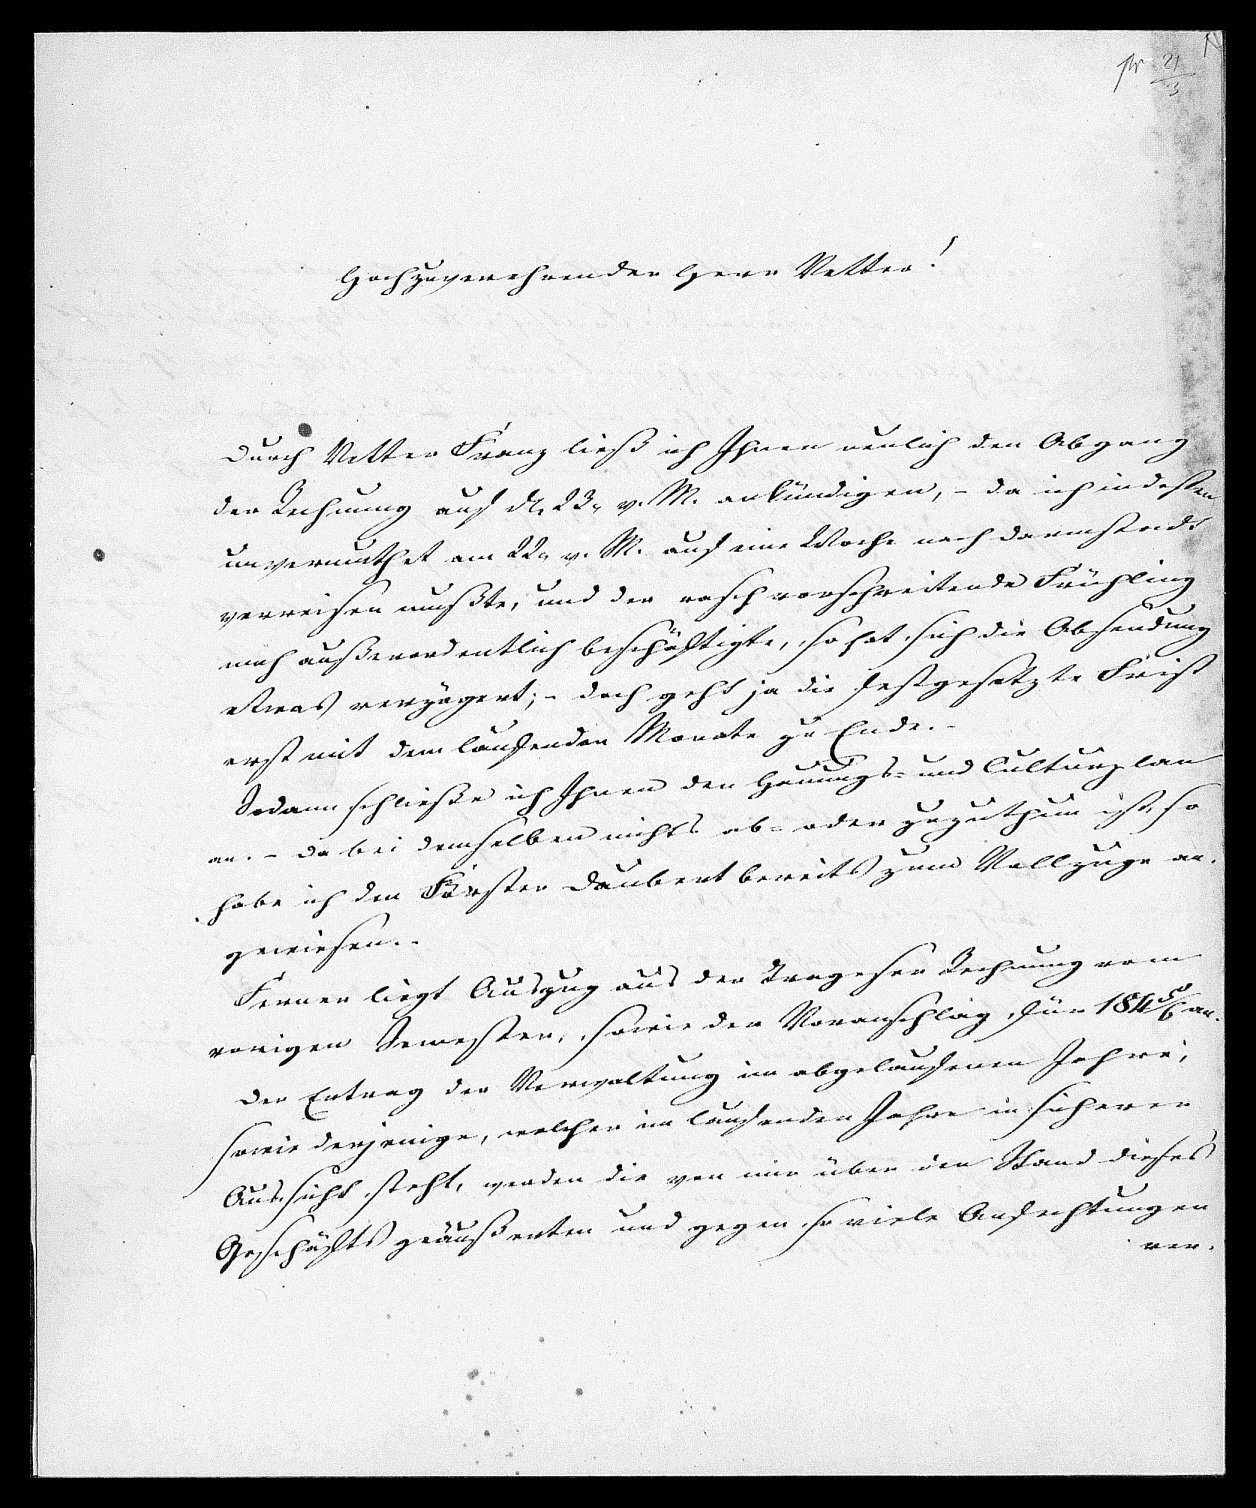 pr 21/3
Hochzuverehrender Herr Vetter!
Durch Vetter Franz ließ ich Ihnen neulich den Abgang
der Rechnung auf d. 23. v. M. ankündigen, - da ich indessen
unvermuthet am 22. v. M. auf eine Woche nach Darmstadt
verreisen mußte, und der rasch vorschreitende Frühling
mich außerordentlich beschäftigte, so hat sich die Absendung
etwas verzögert; - doch geht ja die festgesetzte Frist
erst mit dem laufenden Monate zu Ende. -
Sodann schließe ich Ihnen den Hauungs- und Culturplan
an. - Da bei demselben nichts ab- oder zuzuthun ist, so
habe ich den Förster Daubert bereits zum Vollzuge an-
gewiesen. -
Ferner liegt Auszug aus der Trageser Rechnung vom
vorigen Semester, sowie der Voranschlag für 1845/6 an.
Der Ertrag der Verwaltung im abgelaufenen Jahre,
sowie derjenige, welcher im laufenden Jahre in sicherer
Aussicht steht, werden die von mir über den Stand dieses
Geschäfts geäußerten und gegen so viele Anfechtungen
ver-